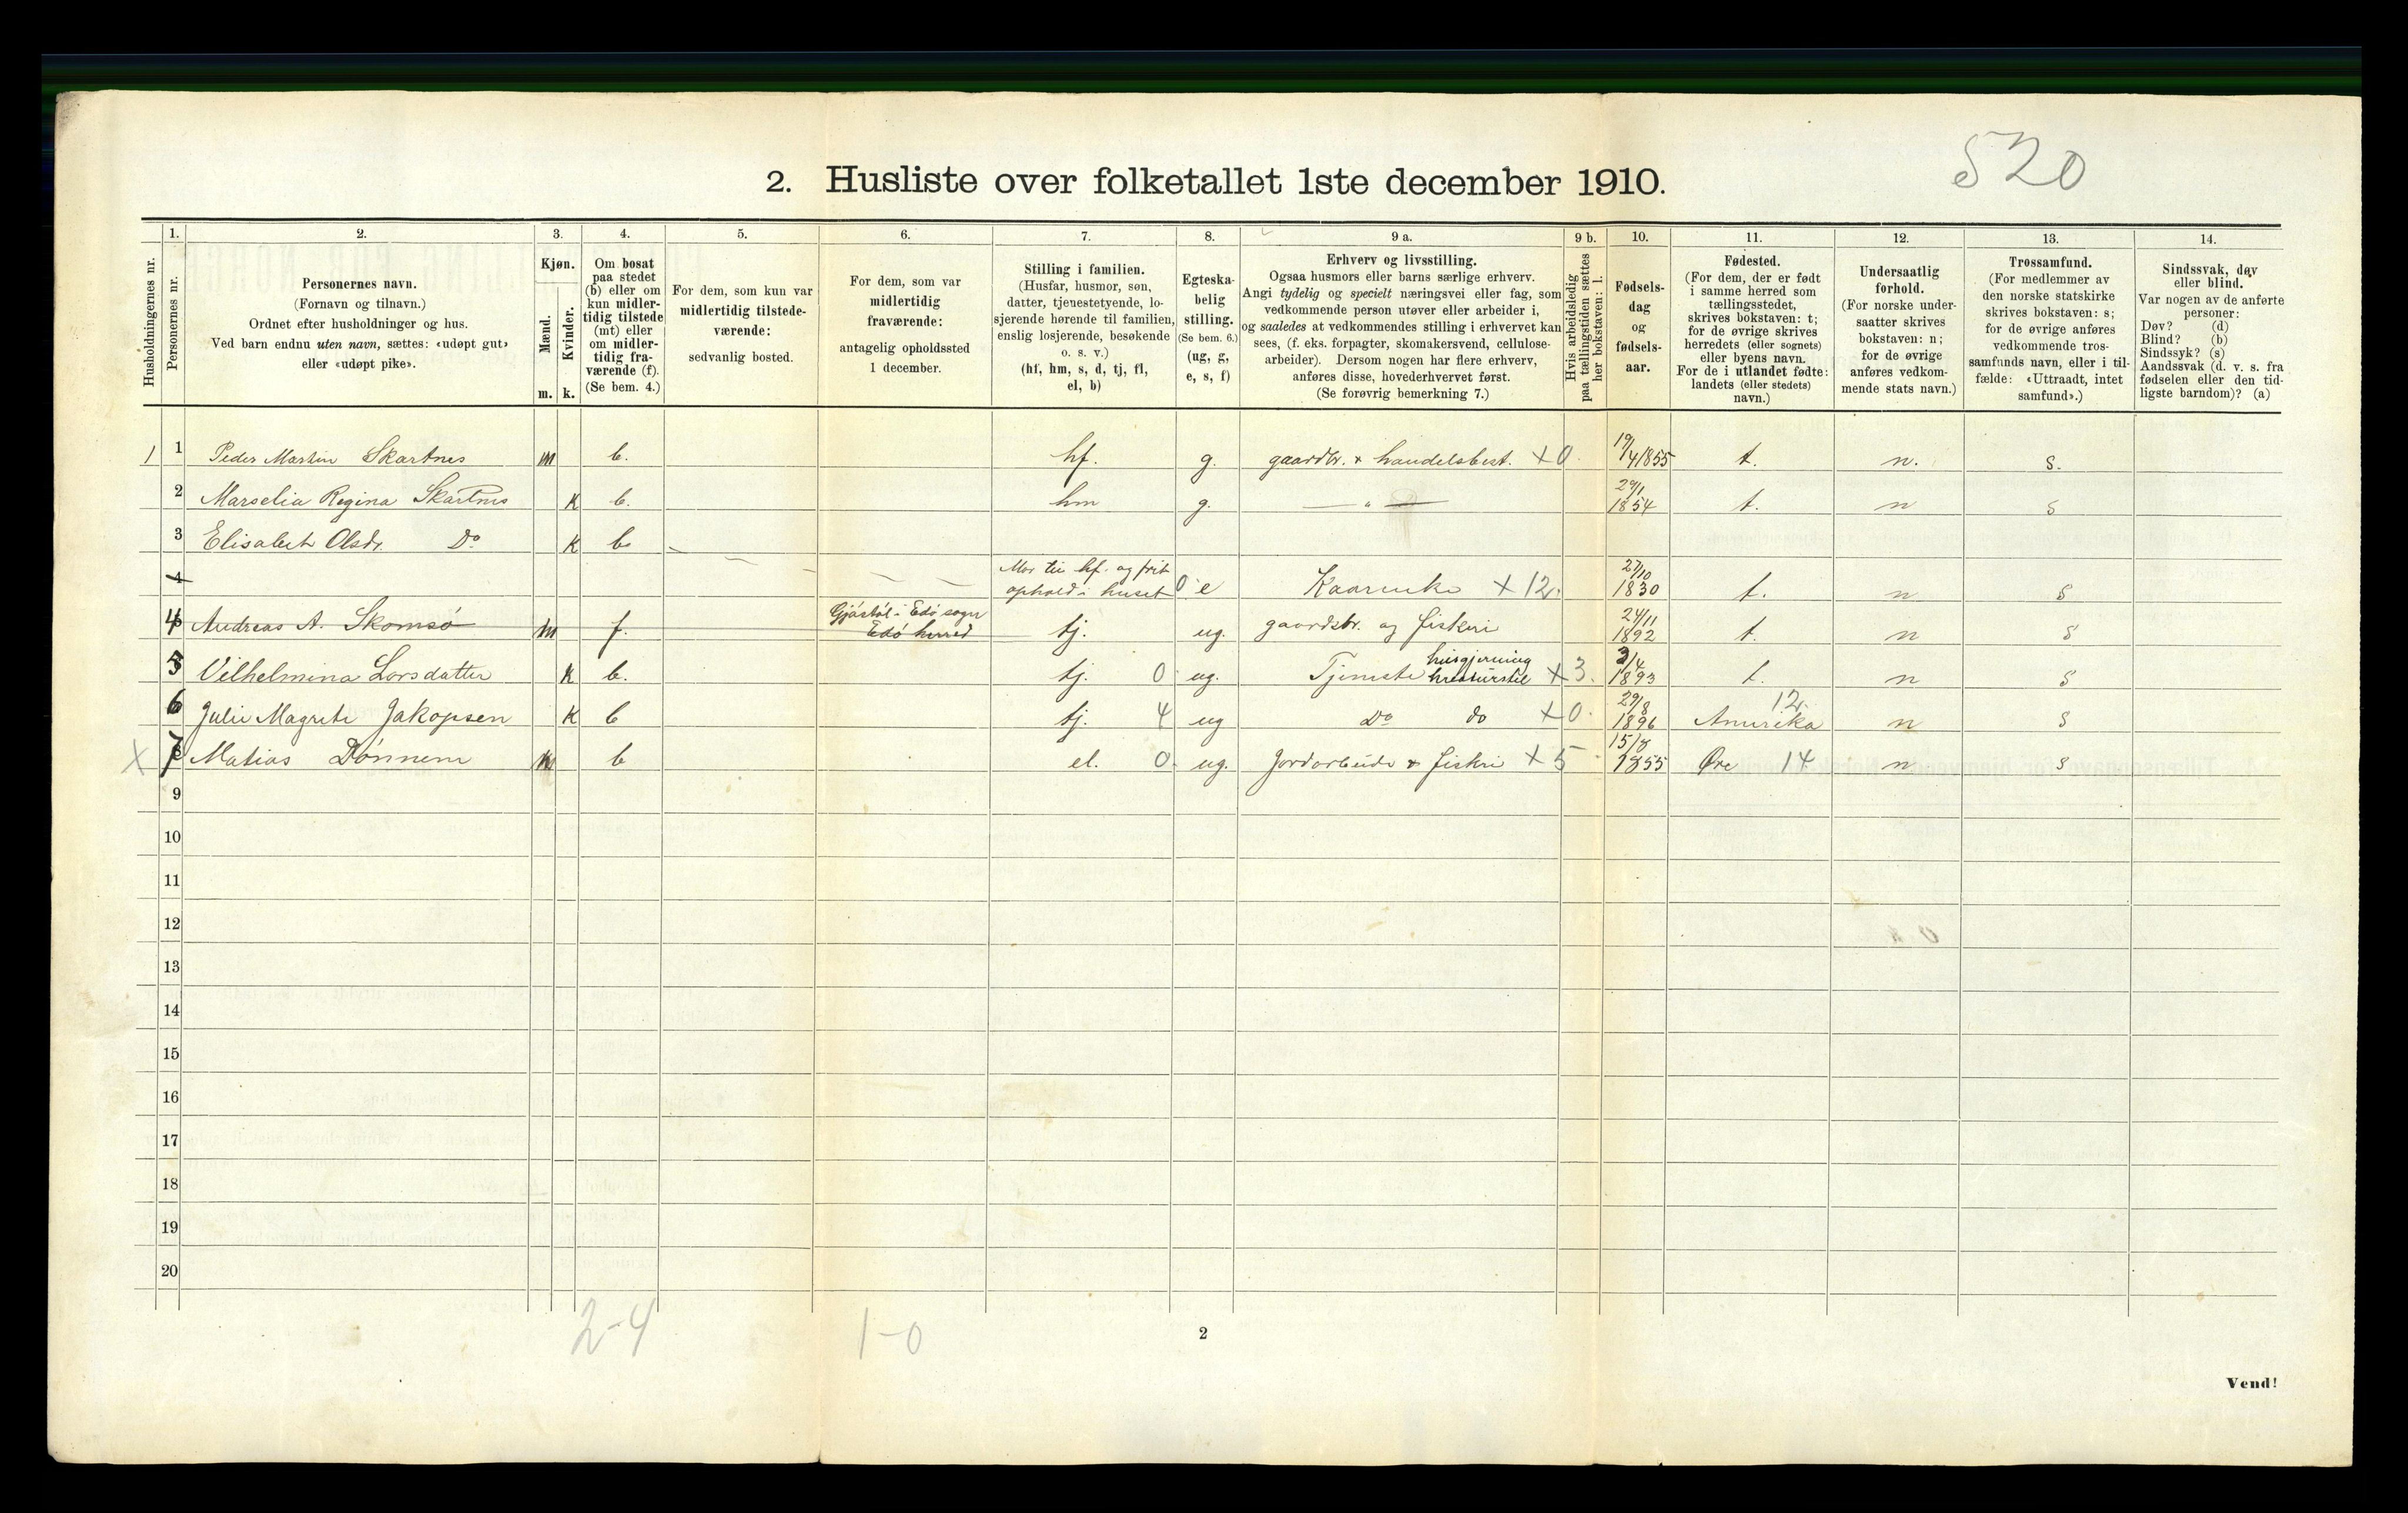 520
2. Husliste over folketallet 1ste december 1910.
Husholdningernes nr.
1.
Personernes nr.
2.
Personernes navn.
(Fornavn og tilnavn.)
Ordnet efter husholdninger og hus.
Ved barn endnu uten navn, sættes: «udøpt gut»
eller «udøpt pike».
3.
Kjøn.
Mænd.
Kvinder.
m. k.
4.
Om bosat
paa stedet
(b) eller om
kun midler-
tidig tilstede
(mt) eller
om midler-
tidig fra-
værende (f).
(Se bem. 4.)
5.
For dem, som kun var
midlertidig tilstede-
værende:
sedvanlig bosted.
6.
For dem, som var
midlertidig
fraværende:
antagelig opholdssted
1 december.
7.
Stilling i familien.
(Husfar, husmor, søn,
datter, tjenestetyende, lo-
sjerende hørende til familien,
enslig losjerende, besøkende
o. s. v.)
(hf, hm, s, d, tj, fl,
el, b)
8.
Egteska-
belig
stilling.
(Se bem. 6.)
(ug, g,
e, s, f)
9 a.
Erhverv og livsstilling.
Ogsaa husmors eller barns særlige erhverv.
Angi tydelig og specielt næringsvei eller fag, som
vedkommende person utøver eller arbeider i,
og saaledes at vedkommendes stilling i erhvervet kan
sees, (f. eks. forpagter, skomakersvend, cellulose-
arbeider). Dersom nogen har flere erhverv,
anføres disse, hovederhvervet først.
(Se forøvrig bemerkning 7.)
9 b.
Hvis arbeidsledig
paa tællingstiden sættes
her bokstaven: l.
10.
Fødsels-
dag
og
fødsels-
aar.
11.
Fødested.
(For dem, der er født
i samme herred som
tællingsstedet,
skrives bokstaven: t;
for de øvrige skrives
herredets (eller sognets)
eller byens navn.
For de i utlandet fødte:
landets (eller stedets)
navn.)
12.
Undersaatlig
forhold.
(For norske under-
saatter skrives
bokstaven: n;
for de øvrige
anføres vedkom-
mende stats navn.)
13.
Trossamfund.
(For medlemmer av
den norske statskirke
skrives bokstaven: s;
for de øvrige anføres
vedkommende tros-
samfunds navn, eller i til-
fælde: «Uttraadt, intet
samfund».)
14.
Sindssvak, døv
eller blind.
Var nogen av de anførte
personer:
Døv? (d)
Blind? (b)
Sindssyk? (s)
Aandssvak (d. v. s. fra
fødselen eller den tid-
ligste barndom)? (a)
1 1 Peder Martin Skartnes m b. hf. g. gaardbr. & handelsbest. X 0. 19/4 1855 t. n. s.
2 Marselia Regina Skartnes k b. hm g. — " — 29/1 1854 t. n s
3 Elisabet Olsdr. Do k b
4 Mor til hf. og frit
ophold i huset 0 e Kaarenke X 12. 27/10 1830 t. n s
4 Andreas A. Skomsö m f. Gjästöl i Edö sogn
Edö herred tj. ug. gaardsbr. og fiskeri 24/11 1892 t. n s
5 Vilhelmina Larsdatter k b. tj. 0 ug. Tjeneste husgjerning
kreaturstel X 3. 3/4 1893 t. n s
6 Julie Magrete Jakopsen k b tj. 4 ug Do do X 0. 29/8 1896 Amerika 12. n s
X 7 Matias Dönnem m b el. 0. ug. Jordarbeide & fiskri X 5 15/8 1855 Øre 14 n s
9
10
11
12
13
14
15
16
17
18
19
20
2-4 1-0
2
Vend!